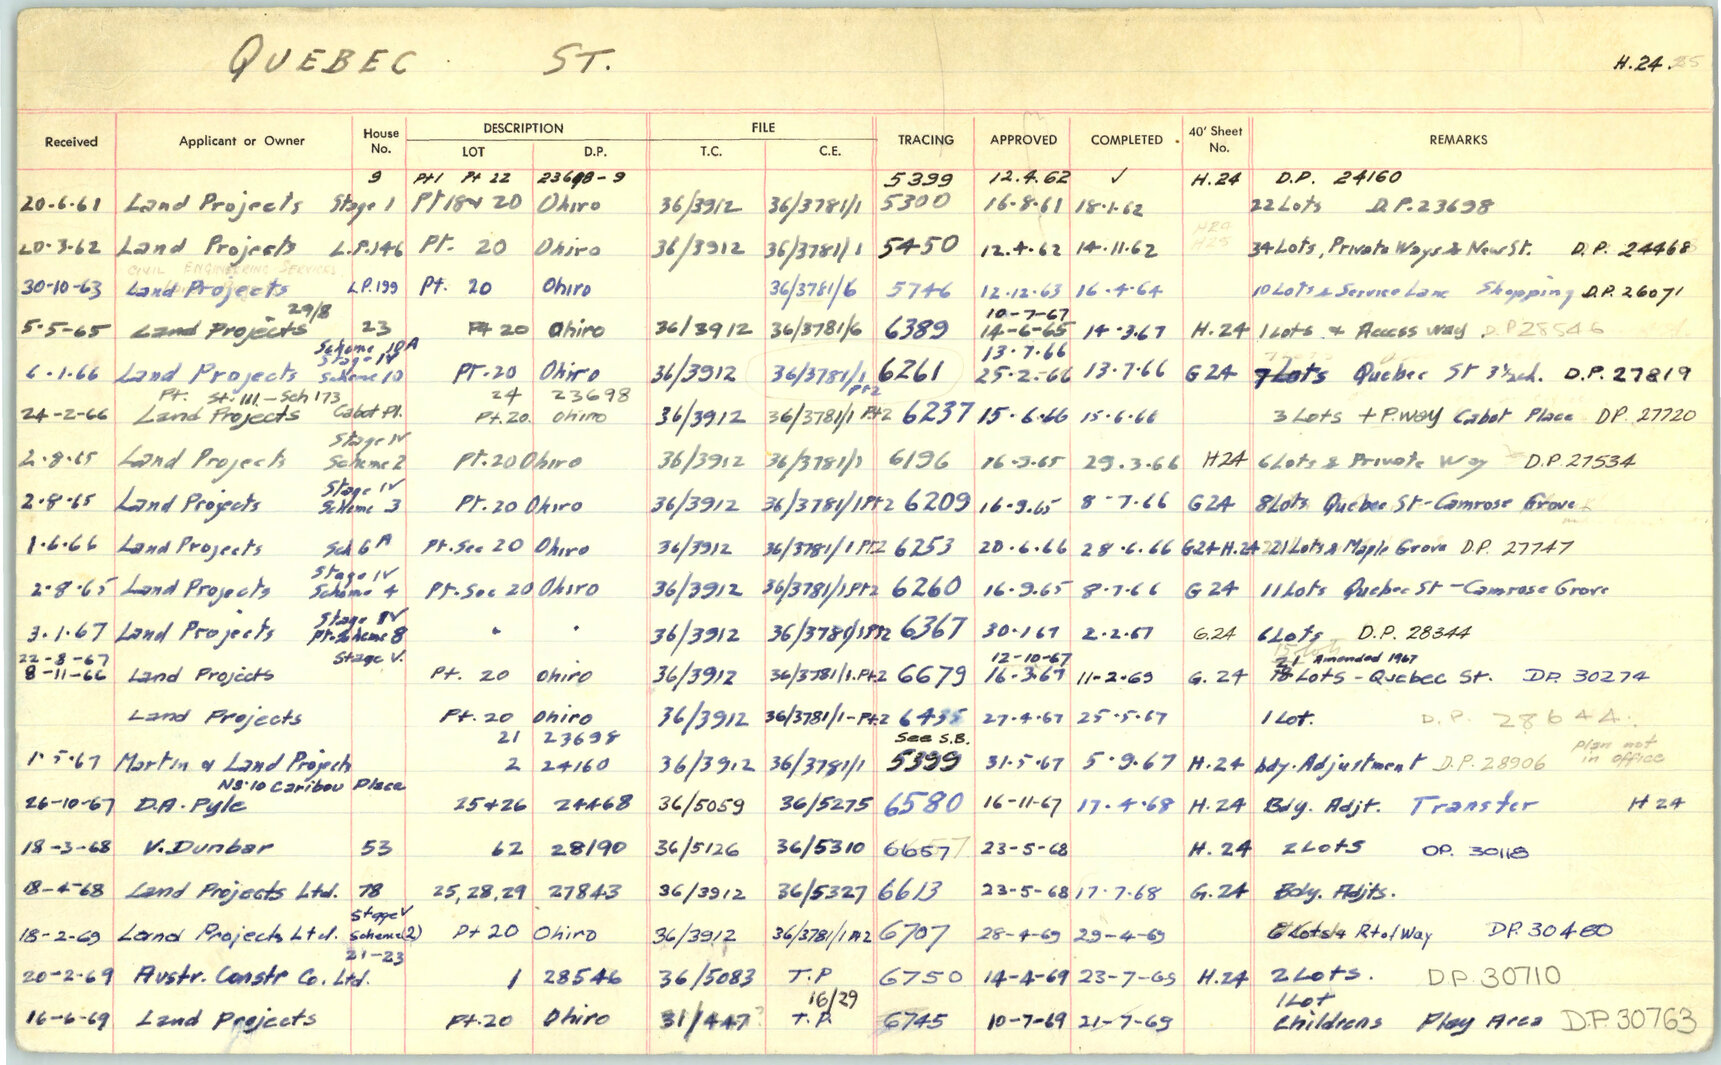 QUEBEC ST.
H.24.25
Received Applicant or Owner House No. DESCRIPTION LOT D.P. FILE T.C. C.E. TRACING APPROVED COMPLETED 40' Sheet No. REMARKS
9 Pt1 Pt 22 23698-9 5399 12.4.62 ✓ H.24 D.P. 24160
20-6-61 Land Projects Stage 1 Pt 18+ 20 Ohiro 36/3912 36/3781/1 5300 16-8-61 18-1-62 22 Lots D.P. 23698
H24
H25
20-3-62 Land Projects L.P.146 Pt. 20 Ohiro 36/3912 36/3781/1 5450 12.4.62 14-11-62 34 Lots, Private Ways & New St. D.P. 24468
CIVIL ENGINEERING SERVICES
30-10-63 Land Projects L.P.199 Pt. 20 Ohiro 36/3781/6 5746 12-12-63 16-4-64 10 Lots & Service Lane Shopping D.P. 26071
29/8 10-7-67
5-5-65 Land Projects 23 Pt 20 Ohiro 36/3912 36/3781/6 6389 14-6-65 14-3-67 H.24 1 Lots & Access way D.P 28546
Scheme 10A
Stage IV 13-7-66
6-1-66 Land Projects Scheme 10 Pt. 20 Ohiro 36/3912 36/3781/1 Pt2 6261 25-2-66 13-7-66 G24 7 Lots Quebec St D.P. 27819
Pt. St. III - Sch 173 24 23698
24-2-66 Land Projects Cabot Pl. Pt. 20. Ohiro 36/3912 36/3781/1 Pt2 6237 15-6-66 15-6-66 3 Lots + P.Way Cabot Place DP. 27720
Stage IV
2-8-65 Land Projects Scheme 2 Pt. 20 Ohiro 36/3912 36/3781/1 6196 16-9-65 29.3.66 H24 6 Lots & Private Way D.P. 27534
Stage IV
2-8-65 Land Projects Scheme 3 Pt. 20 Ohiro 36/3912 36/3781/1 Pt2 6209 16-9-65 8-7-66 G24 8 Lots Quebec St - Camrose Grove
1-6-66 Land Projects Sch 6A Pt. Sec 20 Ohiro 36/3912 36/3781/1 Pt2 6253 20-6-66 28-6-66 G24 H.24 21 Lots & Maple Grove D.P. 27747
Stage IV
2-8-65 Land Projects Scheme 4 Pt. Sec 20 Ohiro 36/3912 36/3781/1 Pt2 6260 16-9-65 8-7-66 G24 11 Lots Quebec St - Camrose Grove
Stage IV
3-1-67 Land Projects Pt. Scheme 8 " " 36/3912 36/3781/1 Pt2 6367 30-1-67 2-2-67 G.24 6 Lots D.P. 28344
22-8-67 Stage V. 12-10-67 21 Amended 1967
8-11-66 Land Projects Pt. 20 Ohiro 36/3912 36/3781/1.Pt2 6679 16-3-67 11-2-69 G.24 18 Lots - Quebec St. DP. 30274
Land Projects Pt. 20 Ohiro 36/3912 36/3781/1 - Pt2 6435 27-4-67 25-5-67 1 Lot. D.P. 28644.
21 23698 See S.B. Plan not in office
1-5-67 Martin & Land Projects 2 24160 36/3912 36/3781/1 5399 31-5-67 5-9-67 H.24 bdy. Adjustment D.P. 28906
N9.10 Caribou Place
26-10-67 D.A. Pyle 25+26 24468 36/5059 36/5275 6580 16-11-67 17-4-68 H.24 Bdy. Adjt. Transfer H 24
18-3-68 V. Dunbar 53 62 28190 36/5126 36/5310 6657 23-5-68 H.24 2 Lots DP. 30118
18-4-68 Land Projects Ltd. 78 25,28,29 27843 36/3912 36/5327 6613 23-5-68 17-7-68 G.24 Bdy. Adjts.
Stage V
18-2-69 Land Projects Ltd. Scheme(2) Pt 20 Ohiro 36/3912 36/3781/1 Pt2 6707 28-4-69 29-4-69 Lots & Rt of Way DP. 30460
21-23
20-2-69 Austr. Constr Co. Ltd. 1 28546 36/5083 T.P 6750 14-4-69 23-7-69 H.24 2 Lots. D.P. 30710
16/29 1 Lot
16-6-69 Land Projects Pt. 20 Ohiro 31/447? T.P. 6745 10-7-69 21-7-69 Childrens Play Area D.P. 30763